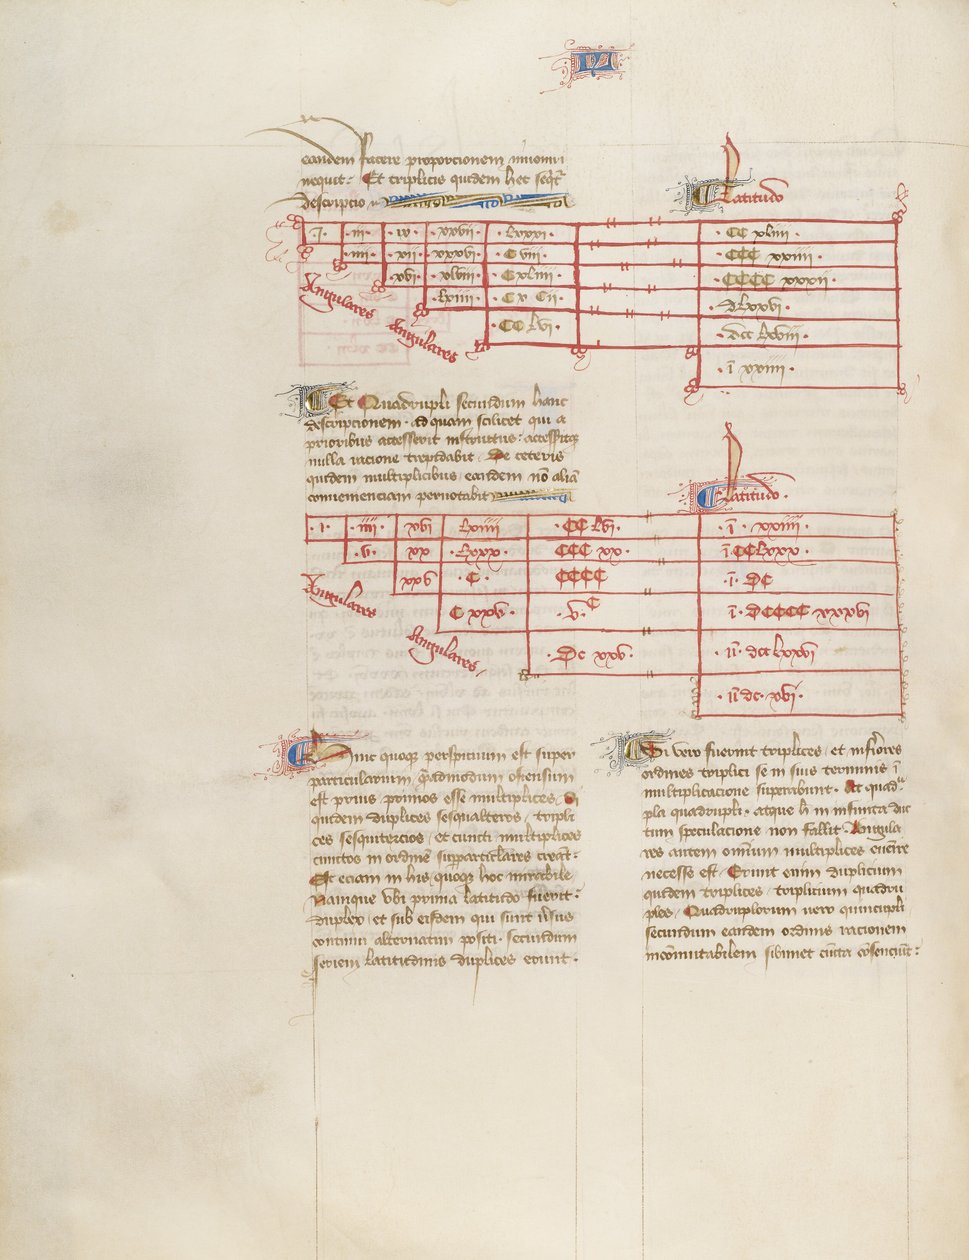 eandem facere proporcionem minimi
nequit: Et triplicis quidem hec seqt̄
descriptio
Latitudo
.I. .iii. .ix. .xxvii. .lxxxi. .CC xliii.
.iiii. .xii. .xxxvi. .C viii. .CCC xxiiii.
.xvi. .xlviii. .C xliiii. .CCCC xxxii
.lxiiii. .C x Cii. .dlxxvi.
.CC lvi. .dcc lxviii.
.ī xxiiii.
Angulares
Angulares
Et Quadrupli secundum hanc
descripcionem. ad quam scilicet qui a
prioribus accesserit instructus: accessitq
nulla racione trepidabit. De ceteris
quidem multiplicibus eandem nō aliā
convenienciam pernotabit
Latitudo.
.i. .iiii. xvi .lxiiii. .CC lvi. .ī. xxiiii.
.v. xx .lxxx. CCC xx. ī.CClxxx.
xxv .C. CCCC .ī. DC
C xxv. .v.C .ī. DCCCC xxxvi
.DC xxv. .īī. dcc lxxvi
.īī. dc. xvi.
Angulares
Angulares
Hinc quoque perspicuum est super
particularium, quēadmodum ostensum
est prius primos esse multiplices. Si
quidem duplices sesqualteros, tripli
ces sesquitercios, et cuncti multiplices
cunctos in ordinē supparticlares creāt:
Est eciam in his quoque hoc mirabile,
Namque vbi prima latitudo fuerit:
duplex, et sub eisdem qui sunt v̄sus
continui alternatim positi. secundum
seriem latitudinis duplices erunt.
Si vero fuerint triplices, et inferiores
ordines triplici se in suis terminis ī
multiplicacione superabunt. At quad
pla quadrupli. atque h in infinita duc
tum speculacione non fallit. Angula
res autem omnium multiplices euēire
necesse est. Erunt enim duplicium
quidem triplices, triplicium quadru
ples, Quadruplorum vero quincupli
secundum eandem ordinis racionem
incōmutabilem sibimet cūcta cōsenciūt: